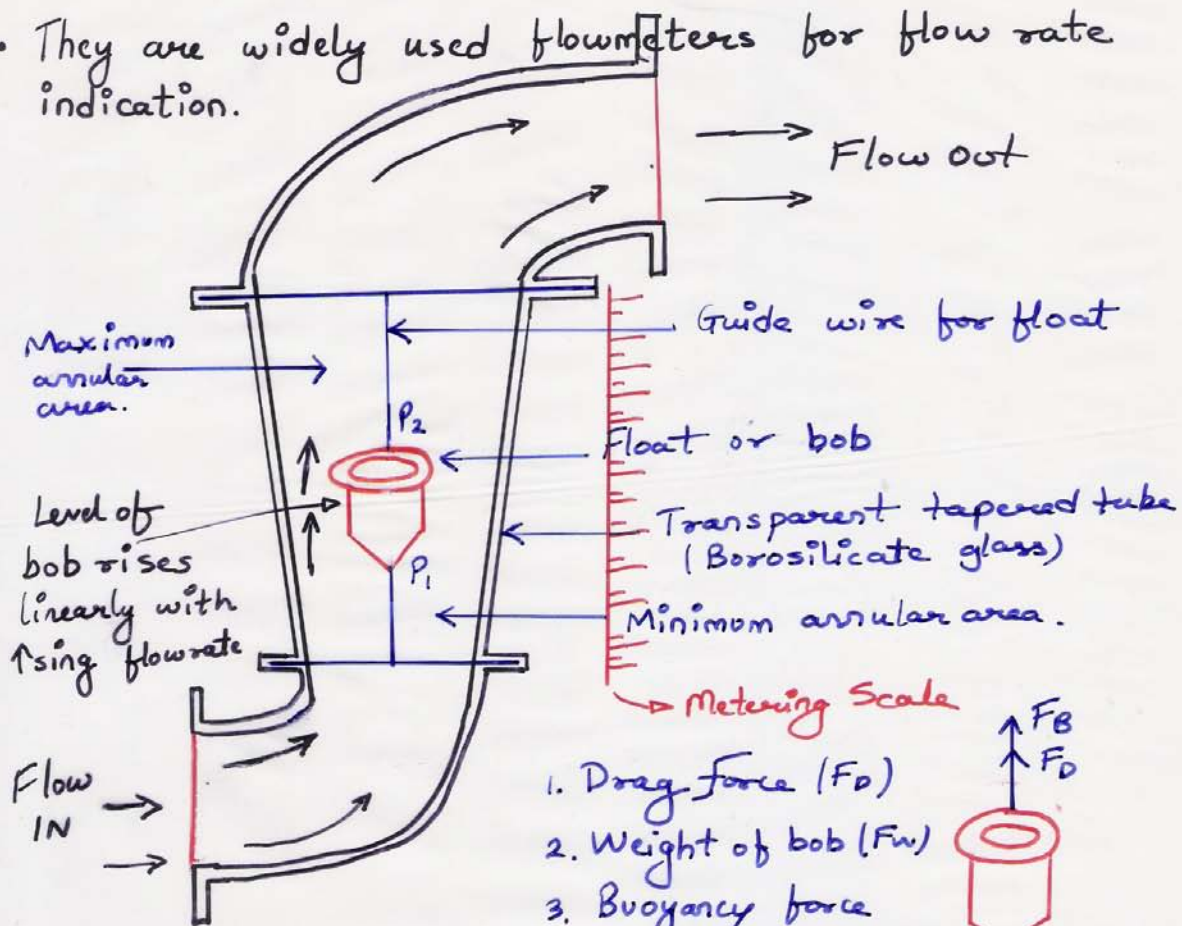 • They are widely used flowmeters for flow rate
indication.
Flow out
Guide wire for float
Maximum
annular
area.
P2
Float or bob
Level of
bob rises
linearly with
↑sing flowrate
Transparent tapered tube
(Borosilicate glass)
P1
Minimum annular area.
Metering Scale
Flow
IN
1. Drag force (FD)
2. Weight of bob (Fw)
3. Buoyancy force
FB
FD